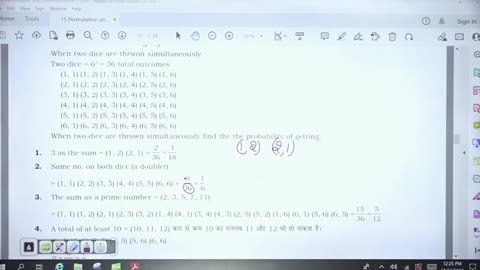 15 Permutation an...
Sign In
When two dice are thrwon simultaneously
Two dice = 6² = 36 total outcomes
(1, 1) (1, 2) (1, 3) (1, 4) (1, 5) (1, 6)
(2, 1) (2, 2) (2, 3) (2, 4) (2, 5) (2, 6)
(3, 1) (3, 2) (3, 3) (3, 4) (3, 5) (3, 6)
(4, 1) (4, 2) (4, 3) (4, 4) (4, 5) (4, 6)
(5, 1) (5, 2) (5, 3) (5, 4) (5, 5) (5, 6)
(6, 1) (6, 2) (6, 3) (6, 4) (6, 5) (6, 6)
When two dice are thrown simultaneously find the the probability of getting
(1, 2) (2, 1)
1. 3 as the sum = (1, 2) (2, 1) = 2/36 = 1/18
2. Same no. on both dice (a doublet)
= (1, 1) (2, 2) (3, 3) (4, 4) (5, 5) (6, 6) = 6/36 = 1/6
3. The sum as a prime number = (2, 3, 5, 7, 11)
= (1, 1) (1, 2) (2, 1) (2, 3) (3, 2) (1, 4) (4, 1) (3, 4) (4, 3) (2, 5) (5, 2) (1, 6) (6, 1) (5, 6) (6, 5) = 15/36 = 5/12
4. A total of at least 10 = (10, 11, 12) कम से कम 10 का मतलब 11 और 12 भी हो सकता है।
5) (5, 6) (6, 6)
12:25 PM